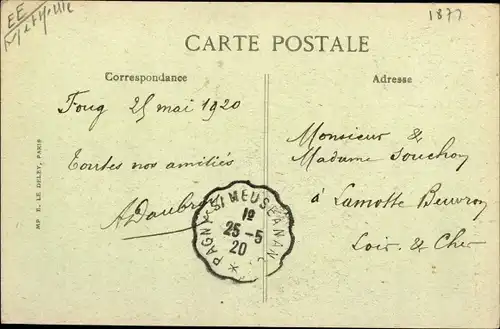 EE
1877
CARTE POSTALE
Correspondance
Adresse
Foug 25 mai 1920
Toutes nos amitiés
ADaubr
Monsieur &
Madame Souchon
à Lamotte Beuvron
Loir & Cher
PAGNY-S/MEUSE A NAN
1º
25-5
20
*
MP E. LE DELEY, PARIS